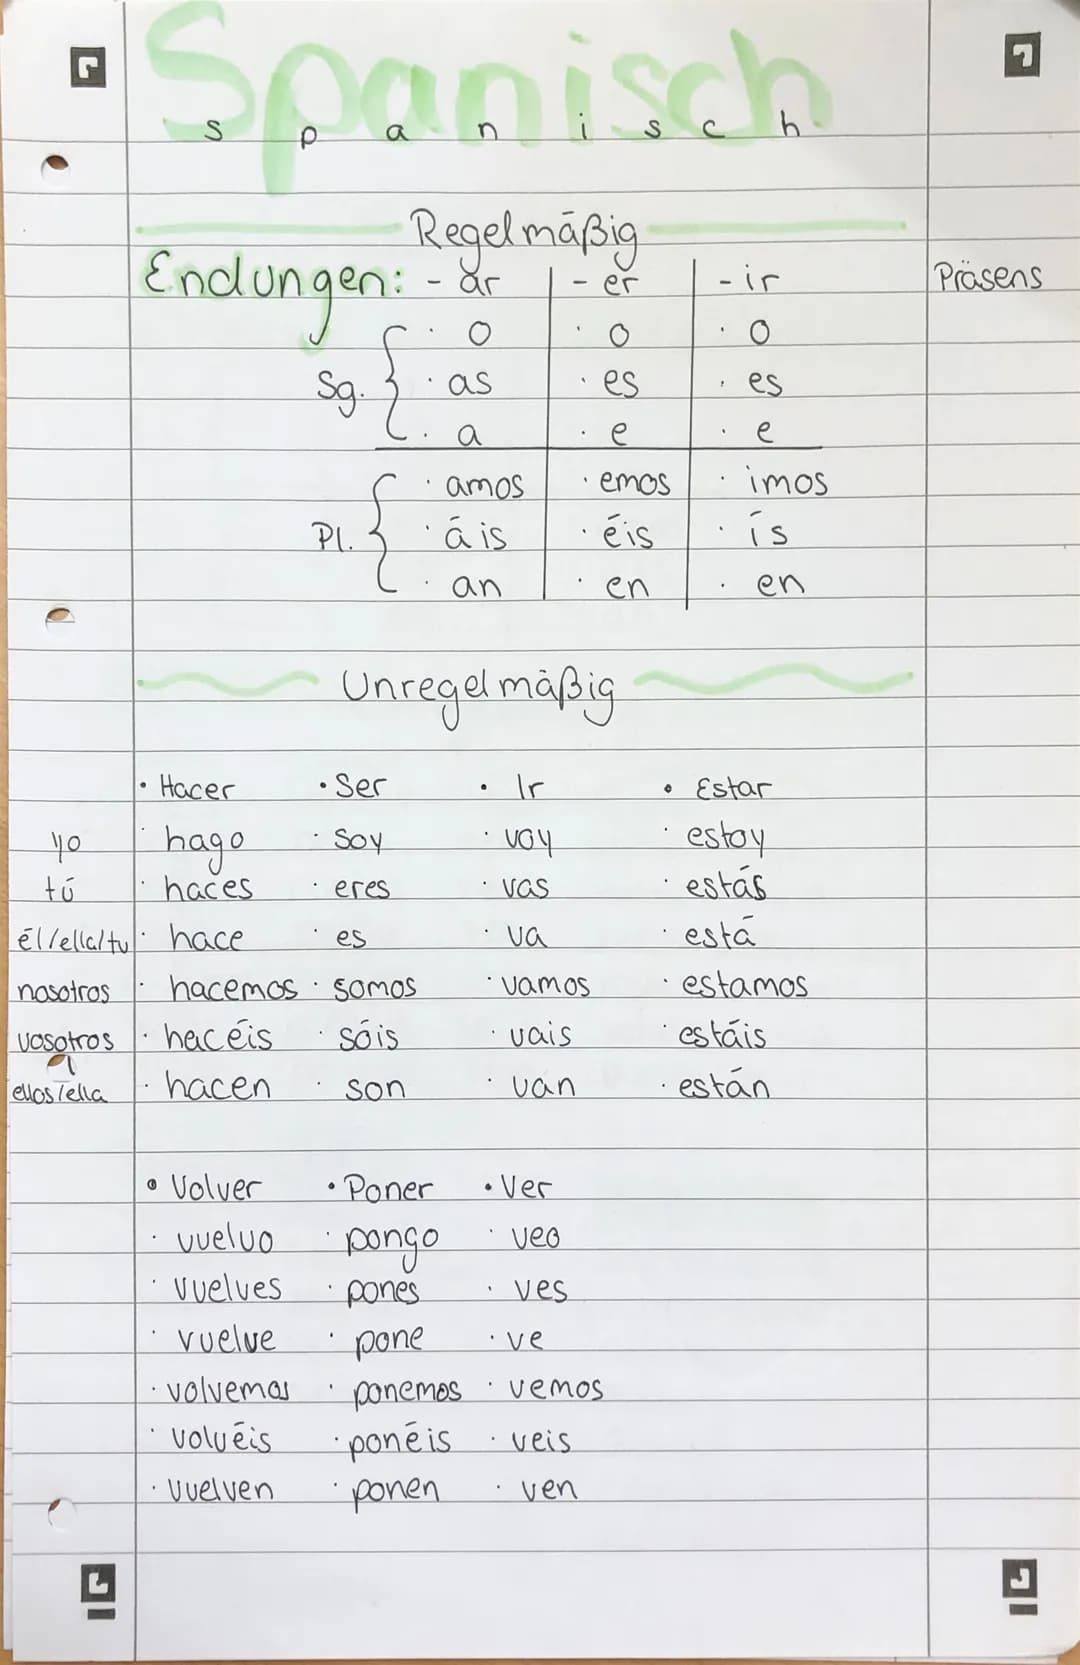 Spanisch
s p a n i s c h
Regelmäßig
Endungen: - ar - er - ir Präsens
· o · o · o
Sg. · as · es · es
· a · e · e
· amos · emos · imos
Pl. · áis · éis · ís
· an · en · en
Unregelmäßig
• Hacer • Ser • Ir • Estar
yo · hago · soy · voy · estoy
tú · haces · eres · vas · estás
él/ella/tu · hace · es · va · está
nosotros · hacemos · somos · vamos · estamos
vosotros · hacéis · sóis · vais · estáis
ellos/ella · hacen · son · van · están
• Volver • Poner • Ver
· vuelvo · pongo · veo
· vuelves · pones · ves
· vuelve · pone · ve
· volvemos · ponemos · vemos
· volvéis · ponéis · veis
· vuelven · ponen · ven